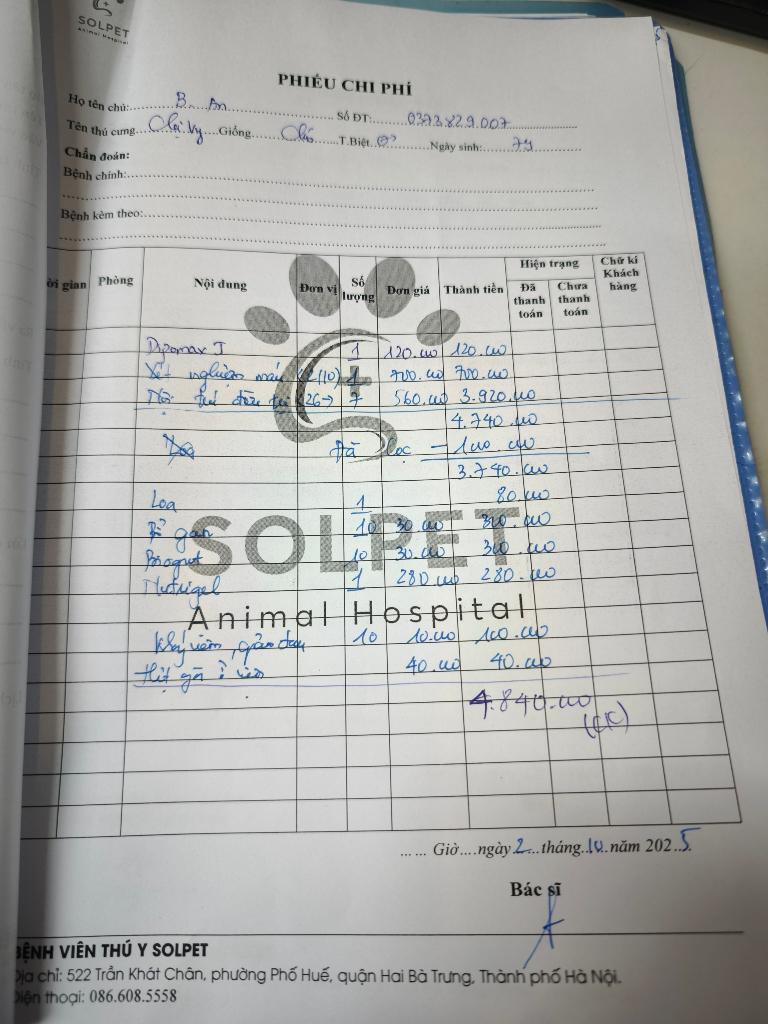 SOLPET
Animal Hospital
PHIẾU CHI PHÍ
Họ tên chủ: B. An Số ĐT: 0373.829.007
Tên thú cưng Giống Chó T.Biệt Ngày sinh: 7y
Chẩn đoán:
Bệnh chính:
Bệnh kèm theo:
ời gian Phòng Nội dung Đơn vị Số lượng Đơn giá Thành tiền Hiện trạng Đã thanh toán Chưa thanh toán Chữ kí Khách hàng
1 120.000 120.000
Xét nghiệm máu (2/10) 1 700.000 700.000
Nội trú điều trị (26→) 7 560.000 3.920.000
4.740.000
Đã cọc
3.740.000
Loa 1 80.000
Bổ gan 10 30.000 300.000
10 30.000 300.000
Nutrigel 1 280.000 280.000
SOLPET
Animal Hospital
Kháng viêm, giảm đau 10 10.000 100.000
40.000 40.000
4.840.000
(CK)
...... Giờ....ngày 2 tháng 10 năm 2025
Bác sĩ
BỆNH VIÊN THÚ Y SOLPET
Địa chỉ: 522 Trần Khát Chân, phường Phố Huế, quận Hai Bà Trưng, Thành phố Hà Nội.
Điện thoại: 086.608.5558